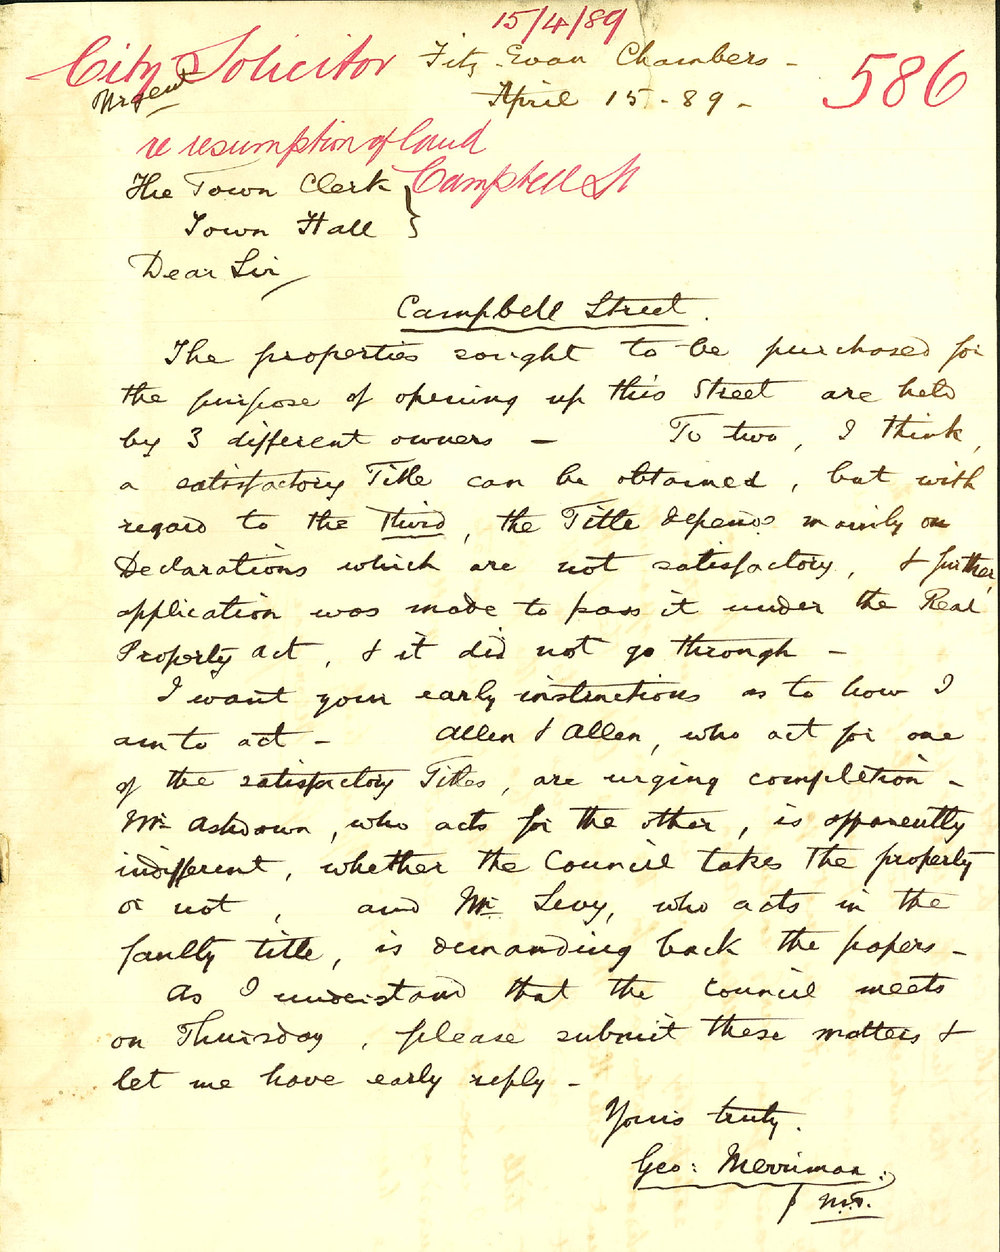 15/4/89
City Solicitor Fitz-Evan Chambers -
Urgent April 15-89- 586
re resumption of land
Campbell St
The Town Clerk }
Town Hall
Dear Sir/
Campbell Street.
The properties sought to be purchased for
the purpose of opening up this Street are held
by 3 different owners - To two, I think,
a satisfactory Title can be obtained, but with
regard to the Third, the Title depends mainly on
Declarations which are not satisfactory, & further,
application was made to pass it under the Real
Property Act, & it did not go through -
I want your early instructions as to how I
am to act - Allen & Allen, who act for one
of the satisfactory Titles, are urging completion -
Mr Ashdown, who acts for the other, is apparently
indifferent, whether the Council takes the property
or not, and Mr. Levy, who acts in the
faulty title, is demanding back the papers -
As I understand that the Council meets
on Thursday, please submit these matters &
let me have early reply -
Yours truly.
Geo: Merriman.